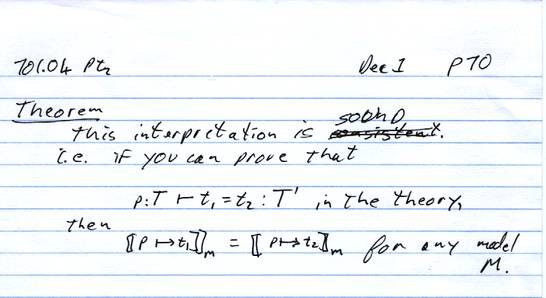 701.04 Pt2 Dec 1 P10
Theorem
sound
This interpretation is consistent.
i.e. if you can prove that
p:T ⊢ t₁ = t₂ : T' in the theory,
then
⟦p ↦ t₁⟧ₘ = ⟦p ↦ t₂⟧ₘ for any model
M.